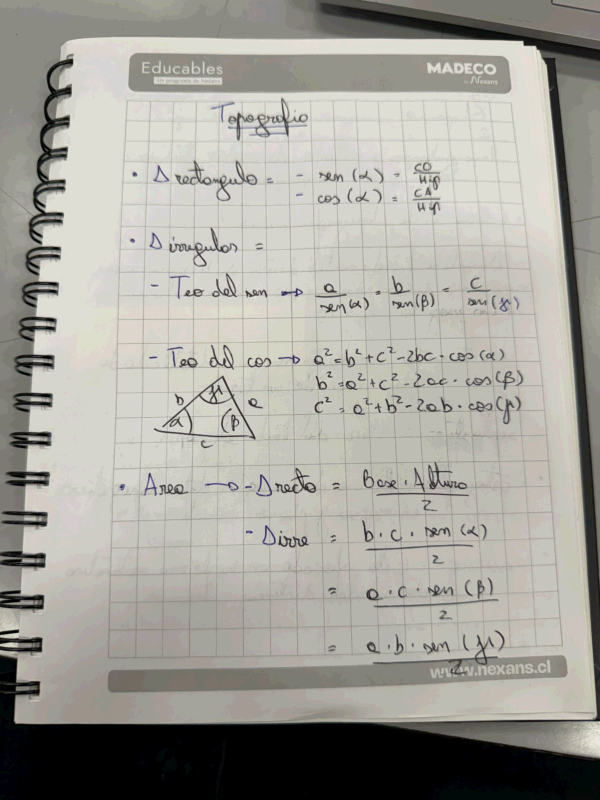 Educables
Un programa de Nexans
MADECO
by Nexans
Topografia
• Δ rectangulo = - sen(α) = CO/Hip
- cos(α) = CA/Hip
• Δ irregulos =
- Teo del sen → a/sen(α) = b/sen(β) = c/sen(γ)
- Teo del cos → a² = b² + c² - 2bc · cos(α)
b² = a² + c² - 2ac · cos(β)
c² = a² + b² - 2ab · cos(γ)
b γ a
α β
c
• Area → - Δ recto = Base · Altura / 2
- Δ irre = b · c · sen(α) / 2
= a · c · sen(β) / 2
= a · b · sen(γ) / 2
www.nexans.cl